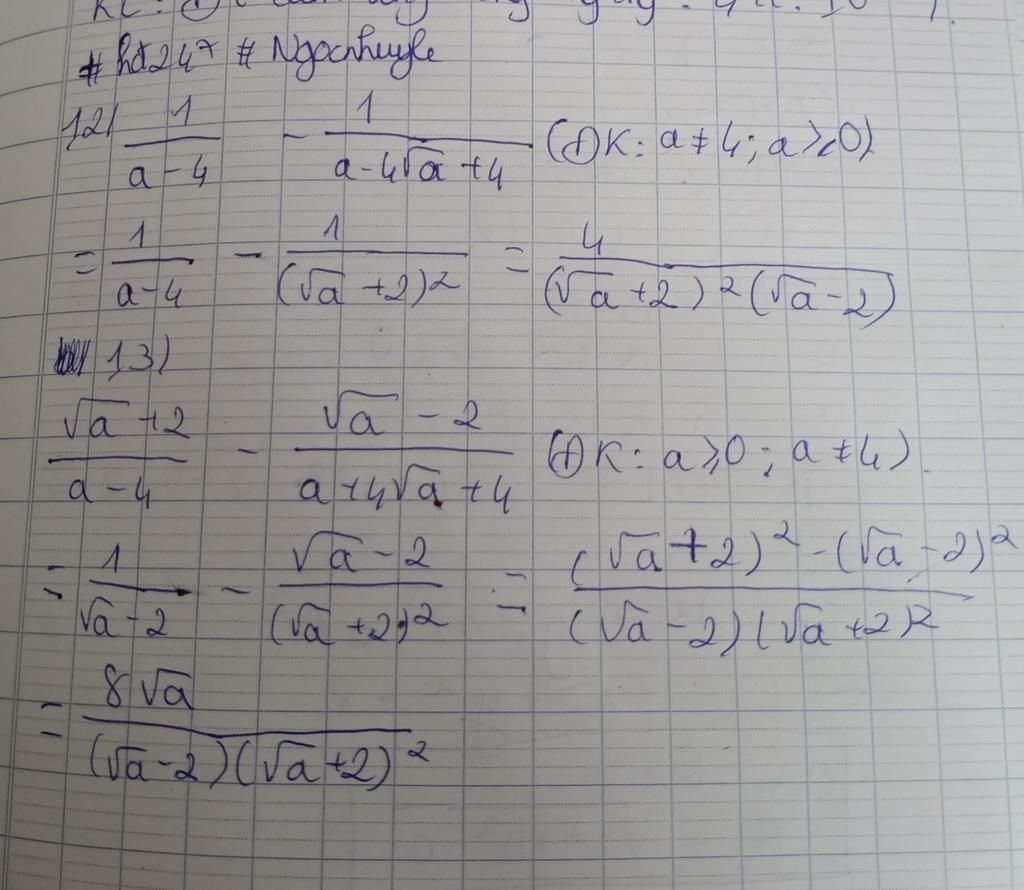 # hd247 # Ngochuyle
12) 1/(a-4) - 1/(a-4√a+4) (ĐK: a≠4; a≥0)
= 1/(a-4) - 1/(√a+2)² = 4/((√a+2)²(√a-2))
13)
(√a+2)/(a-4) - (√a-2)/(a+4√a+4) (ĐK: a≥0; a≠4).
= 1/(√a-2) - (√a-2)/(√a+2)² = ((√a+2)²-(√a-2)²)/((√a-2)(√a+2)²)
= 8√a/((√a-2)(√a+2)²)